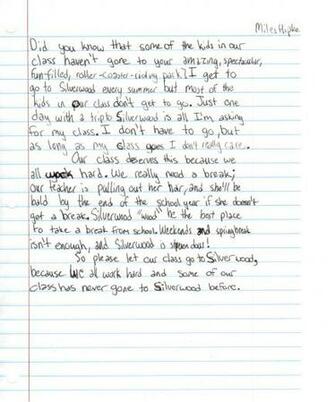 Miles Hipke
Did you know that some of the kids in our
class haven't gone to your amazing, spectacular,
fun-filled, roller-coaster-riding park? I get to
go to Silverwood every summer but most of the
kids in our class don't get to go. Just one
day with a trip to Silverwood is all I'm asking
for my class. I don't have to go, but
as long as my class goes I don't really care.
Our class deserves this because we
all work hard. We really need a break;
our teacher is pulling out her hair, and she'll be
bald by the end of the school year if she doesn't
get a break. Silverwood "wood" be the best place
to take a break from school. Weekends and springbreak
isn't enough, and Silverwood is stupendous!
So please let our class go to Silverwood,
because we all work hard and some of our
class has never gone to Silverwood before.